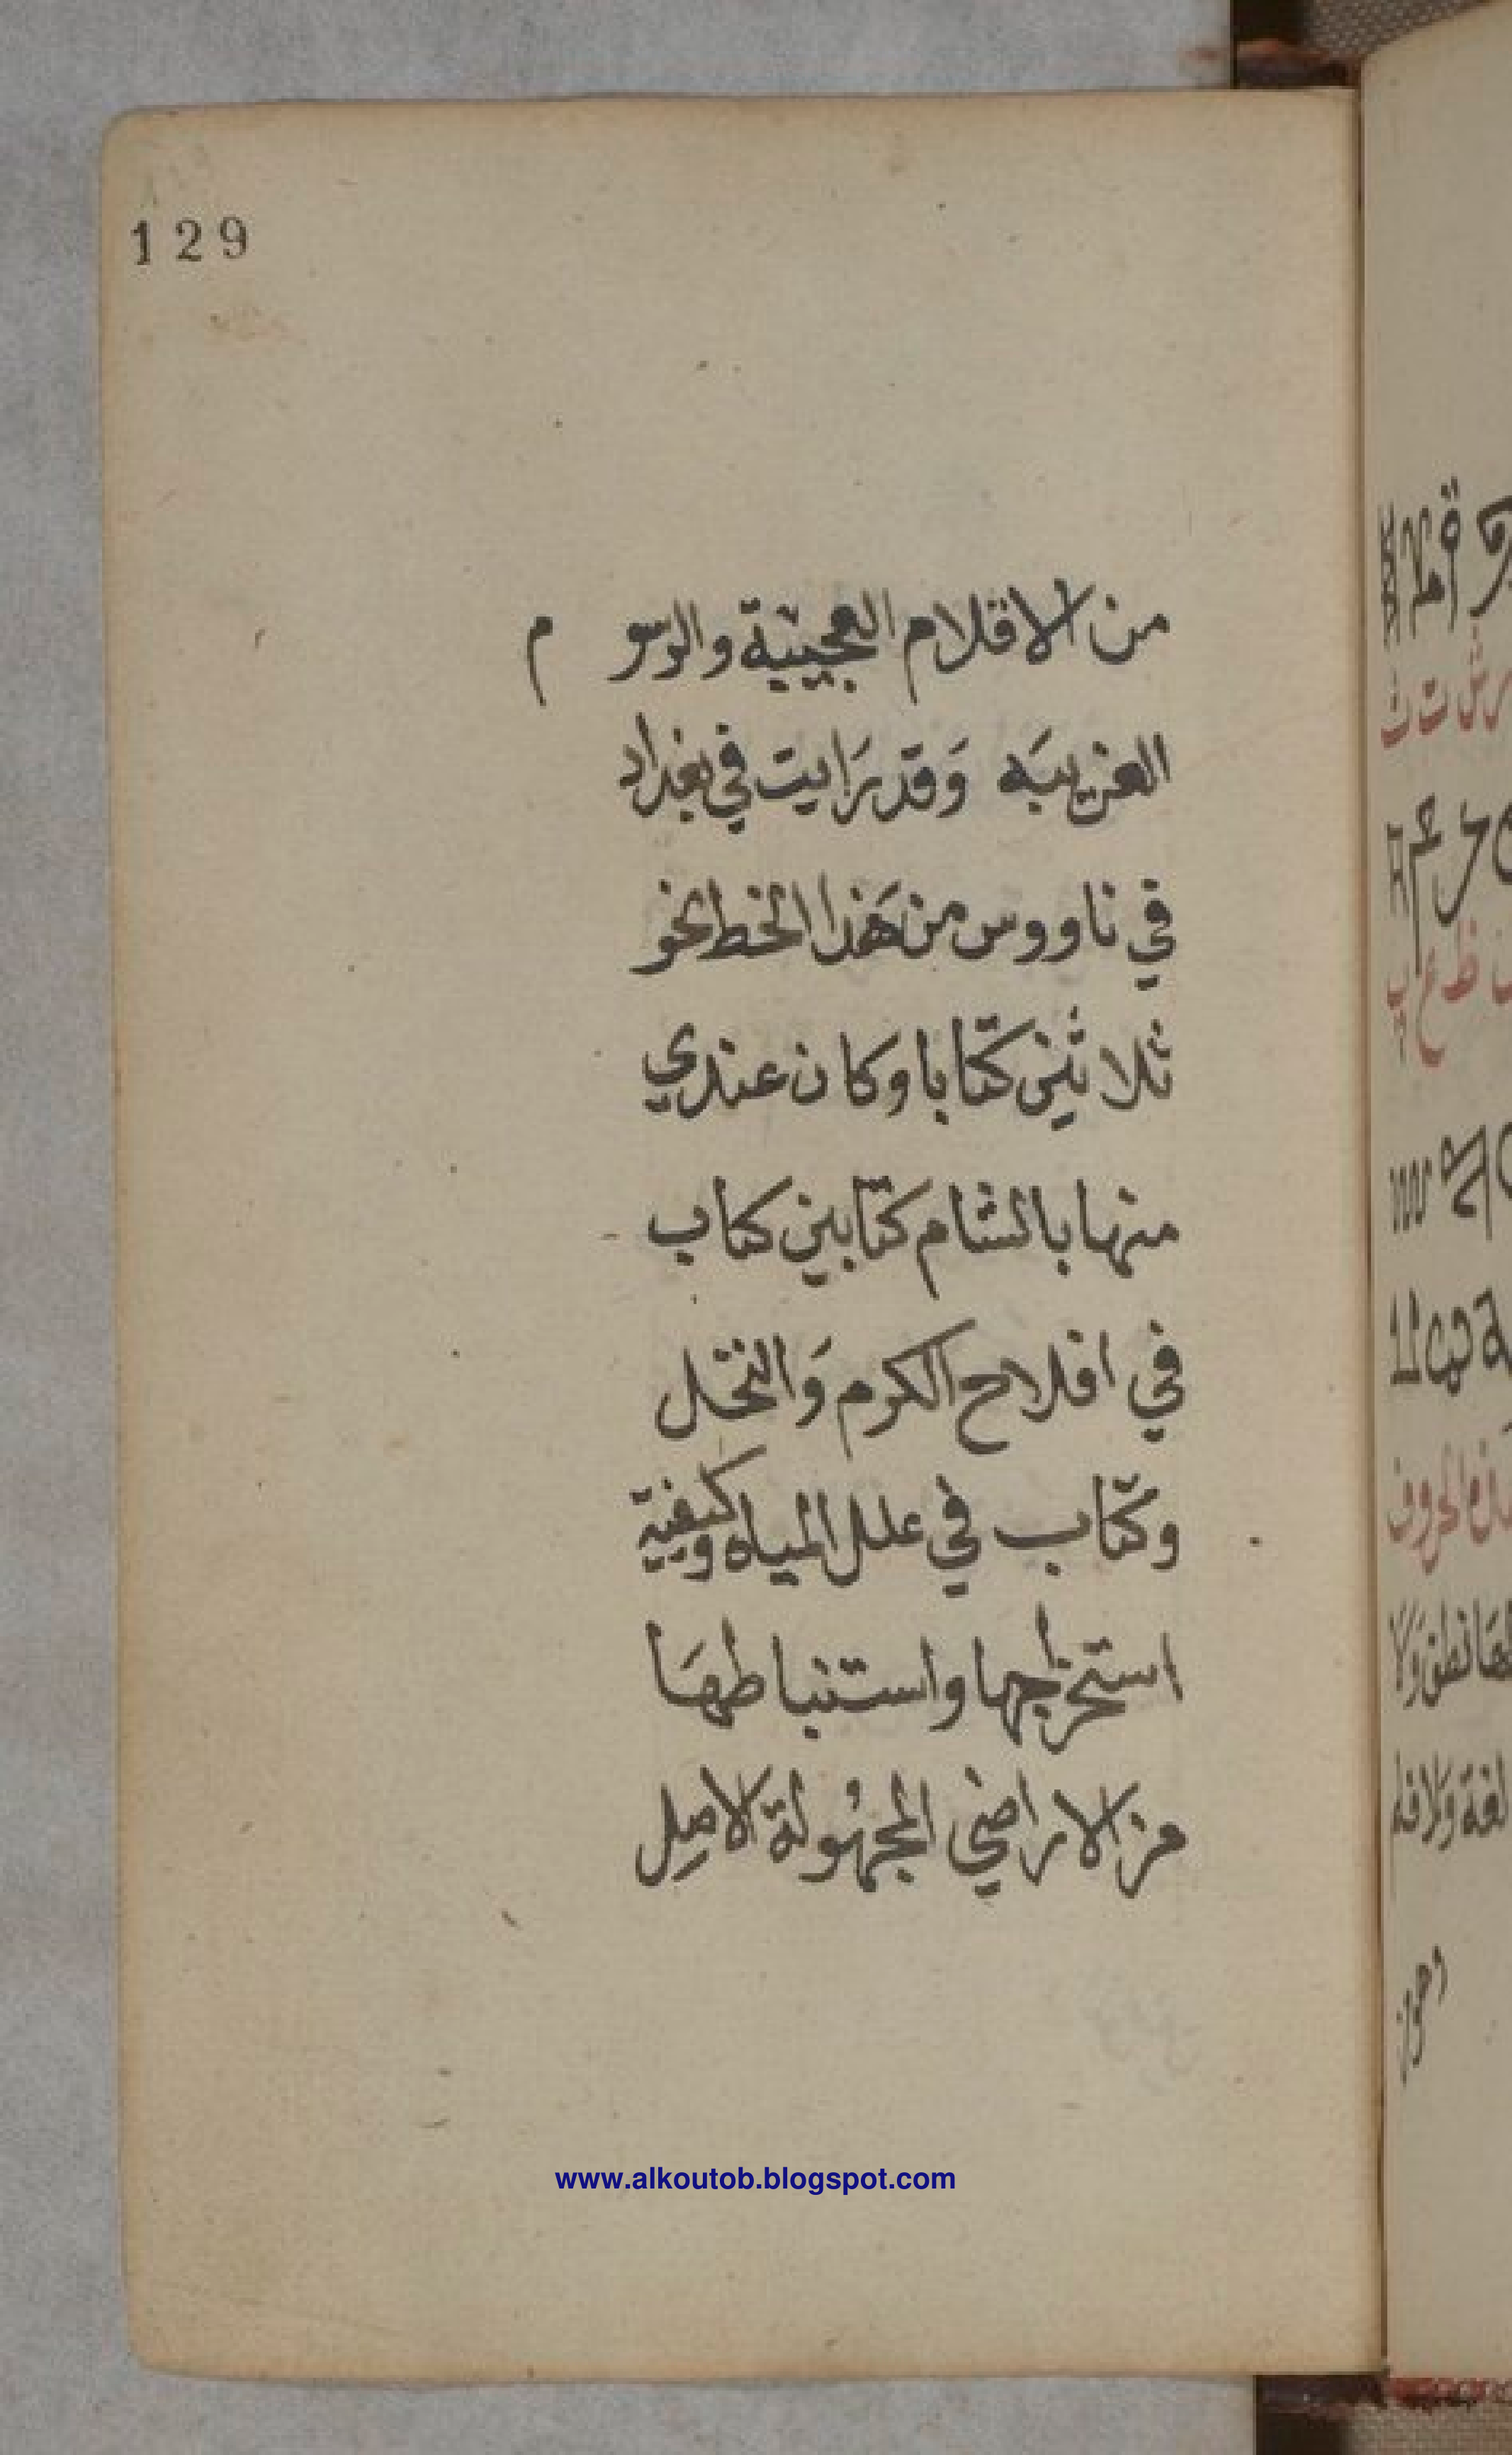 129
من الاقلام العجيبة والرسو م
الغريبَه وَقد رَايت في بغداد
في ناووس من هَذا الخط نحو
ثلاثين كتابا وكان عندي
منها بالشام كتابين كتاب
في افلاح الكرم وَالنخل
وكتاب في علل المياه وكيفية
استخراجها واستنباطهَا
من الاراضي المجهُولة الاصل
www.alkoutob.blogspot.com